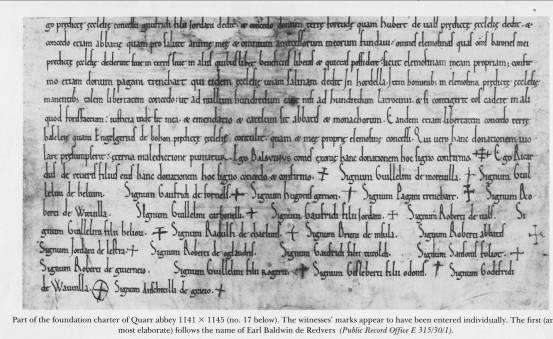 go predicte ecclesie concessi gaufridi filii Jordani dedit. & concedo donationem terre forende quam hubert de uals predicte ecclesie dedit. &
concedo etiam abbatie quam pro salute anime mee & omnium antecessorum meorum fundaui. omnes elemosinas quas barones mei
predicte ecclesie dederunt siue in terris siue in aliis quibuslibet beneficiis libere & quiete possidere. sicut elemosinam meam propriam;
mo etiam donum pagani trenchart qui eidem ecclesie unam salinam dedit
manentibus talem libertatem concedo. ut ad nullum hundredum nisi ad hundredum latrocinii. & si contigerit eos cadere in ali
quod forisfactum: iustitia inde sit mea. & emendatio & catellum sit abbatis & monachorum. Eandem etiam libertatem concedo terre
haseleie quam Engelgerius de bohun predicte ecclesie contulit. quam & mee proprie elemosine concessi. Qui uero hanc donationem uio
lare presumpserit: eterna maledictione puniatur. Ego Baldwinus comes exonie hanc donationem hoc signo confirmo Ego Ricar
dus de reuers filius eius hanc donationem hoc signo concedo & confirmo. Signum Guillelmi de moreuilla. Signum Guil
lelmi de beluum. Signum Gaufridi de fornells Signum Hugonis gernon. Signum Pagani trenchart. Signum Ro
berti de Wiruilla. Signum Guillelmi carbonells. Signum Gaufridi filii Jordani. Signum Roberti de uals. Si
gnum Guillelmi filii helioni. Signum Radulfi de Signum Brieni de insula. Signum Roberti abbatis
Signum Jordani de lestra. Signum Roberti de oglandris. Signum Gaufridi filii turoldi. Signum Sansonis foliot.
Signum Roberti de guerneio. Signum Guillelmi filii rogerii. Signum Gisleberti filii odonis Signum Godefridi
de Wauuilla. Signum Anschetilli de
Part of the foundation charter of Quarr abbey 1141 × 1145 (no. 17 below). The witnesses' marks appear to have been entered individually. The first (an
most elaborate) follows the name of Earl Baldwin de Redvers (Public Record Office E 315/30/1).